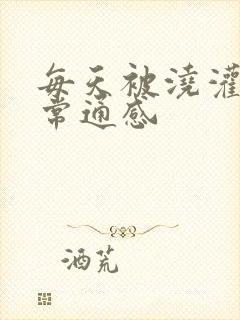 每天被澆灌
常通感
酒荒